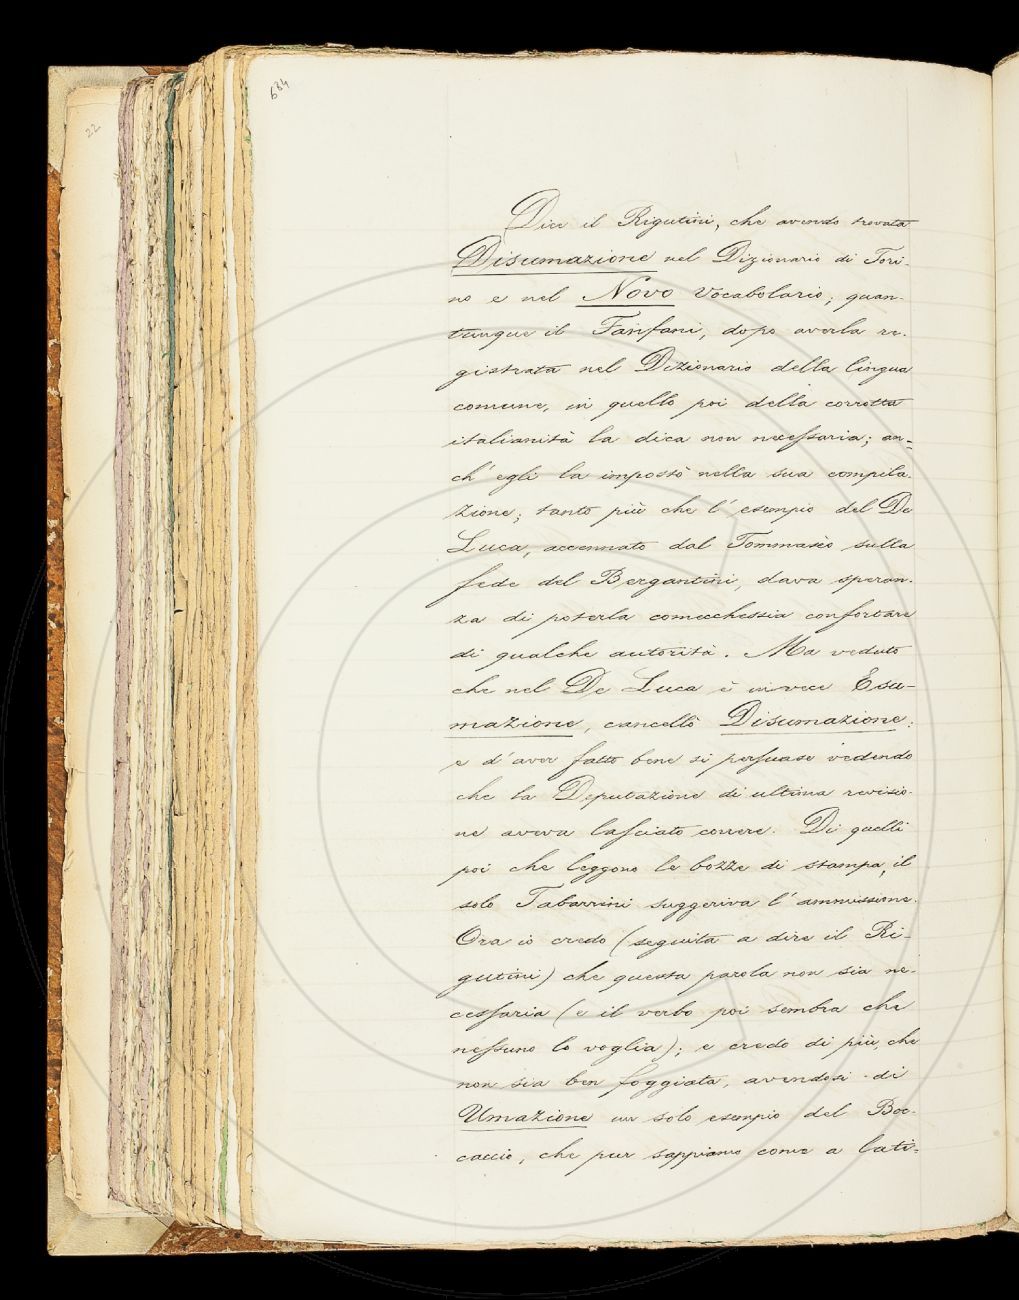 684
22
Dice il Rigutini, che avendo trovata
Disumazione nel Dizionario di Tori-
no e nel Novo Vocabolario; quan-
tunque il Fanfani, dopo averla re-
gistrata nel Dizionario della lingua
comune, in quello poi della corrotta
italianità la dica non necessaria; an-
ch'egli la impostò nella sua compila-
zione; tanto più che l'esempio del De
Luca, accennato dal Tommasèo sulla
fede del Bergantini, dava speran-
za di poterla comecchessia confortare
di qualche autorità. Ma veduto
che nel De Luca è invece Esu-
mazione, cancellò Disumazione;
e d'aver fatto bene si persuase vedendo
che la Deputazione di ultima revisio-
ne aveva lasciato correre. Di quelli
poi che leggono le bozze di stampa, il
solo Tabarrini suggeriva l'ammissione.
Ora io credo (seguita a dire il Ri-
gutini) che questa parola non sia ne-
cessaria (e il verbo poi sembra che
nessuno lo voglia); e credo di più, che
non sia ben foggiata, avendosi di
Umazione un solo esempio del Boc-
caccio, che pur sappiamo come a lati-